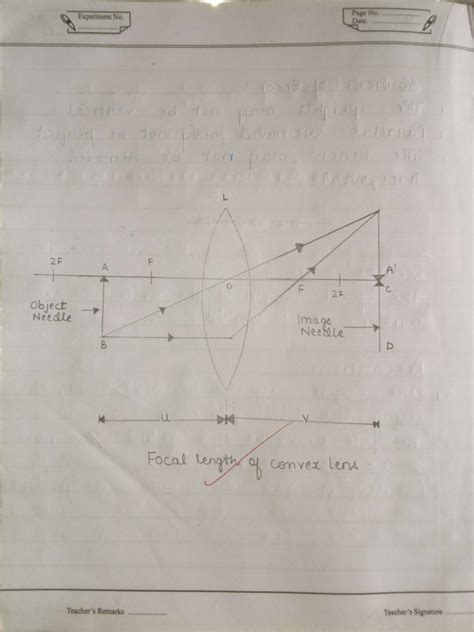 Experiment No.
Page No.
Date
L
2F
A
F
O
F
2F
A'
C
Object
Needle
B
Image
Needle
D
u
v
Focal length of convex lens
Teacher's Remarks
Teacher's Signature